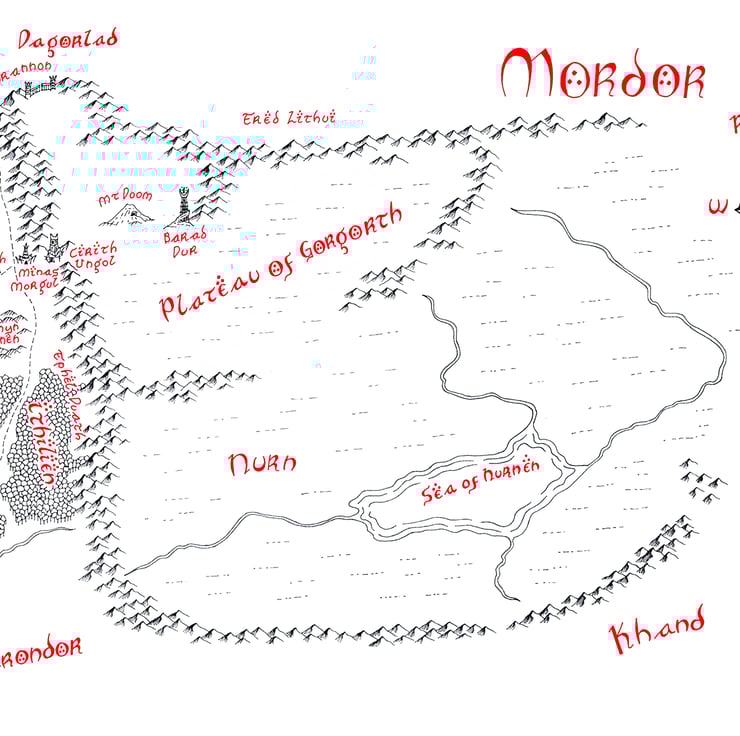 Dagorlad
Mordor
rannon
Ered Lithui
Mt Doom
Barad
Dur
Cirith
Ungol
Minas
Morgul
Plateau of Gorgorth
Ephel Duath
Ithilien
Nurn
Sea of Nurnen
Khand
rondor
W